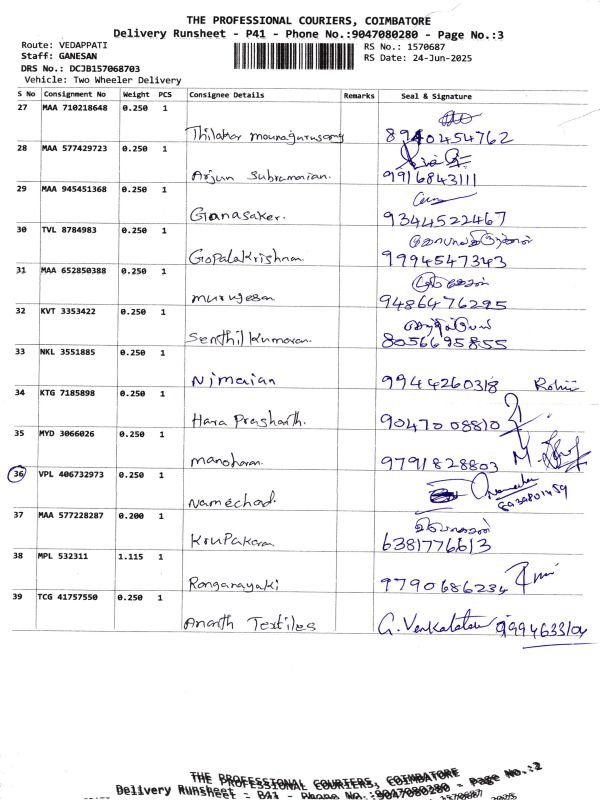 THE PROFESSIONAL COURIERS, COIMBATORE
Delivery Runsheet - P41 - Phone No.:9047080280 - Page No.:3
Route: VEDAPPATI
RS No.: 1570687
Staff: GANESAN
RS Date: 24-Jun-2025
DRS No.: DCJB157068703
Vehicle: Two Wheeler Delivery
S No Consignment No Weight PCS Consignee Details Remarks Seal & Signature
27 MAA 710218648 0.250 1
Thilakar 8940454762
28 MAA 577429723 0.250 1
Arjun Subramanian. 9916843111
29 MAA 945451368 0.250 1
Gunasaker. 9344522467
30 TVL 8784983 0.250 1
Gopalakrishnan 9994547343
31 MAA 652850388 0.250 1
முருகேசன்
murugesan 9486476295
32 KVT 3353422 0.250 1
Senthil Kumaran. 8056695855
33 NKL 3551885 0.250 1
Nimaian 9944260318
34 KTG 7185898 0.250 1
Hara Prashanth. 9047008810
35 MYD 3066026 0.250 1
manoharan. 9791828803
36 VPL 406732973 0.250 1
Namechad.
37 MAA 577228287 0.200 1
Krupakaran 6381776613
38 MPL 532311 1.115 1
Ranganayaki 9790686234
39 TCG 41757550 0.250 1
Ananth Textiles G. Venkatesan
THE PROFESSIONAL COURIERS, COIMBATORE
Delivery Runsheet - P41 - Phone No.:9047080280 - Page No.:2
1570687